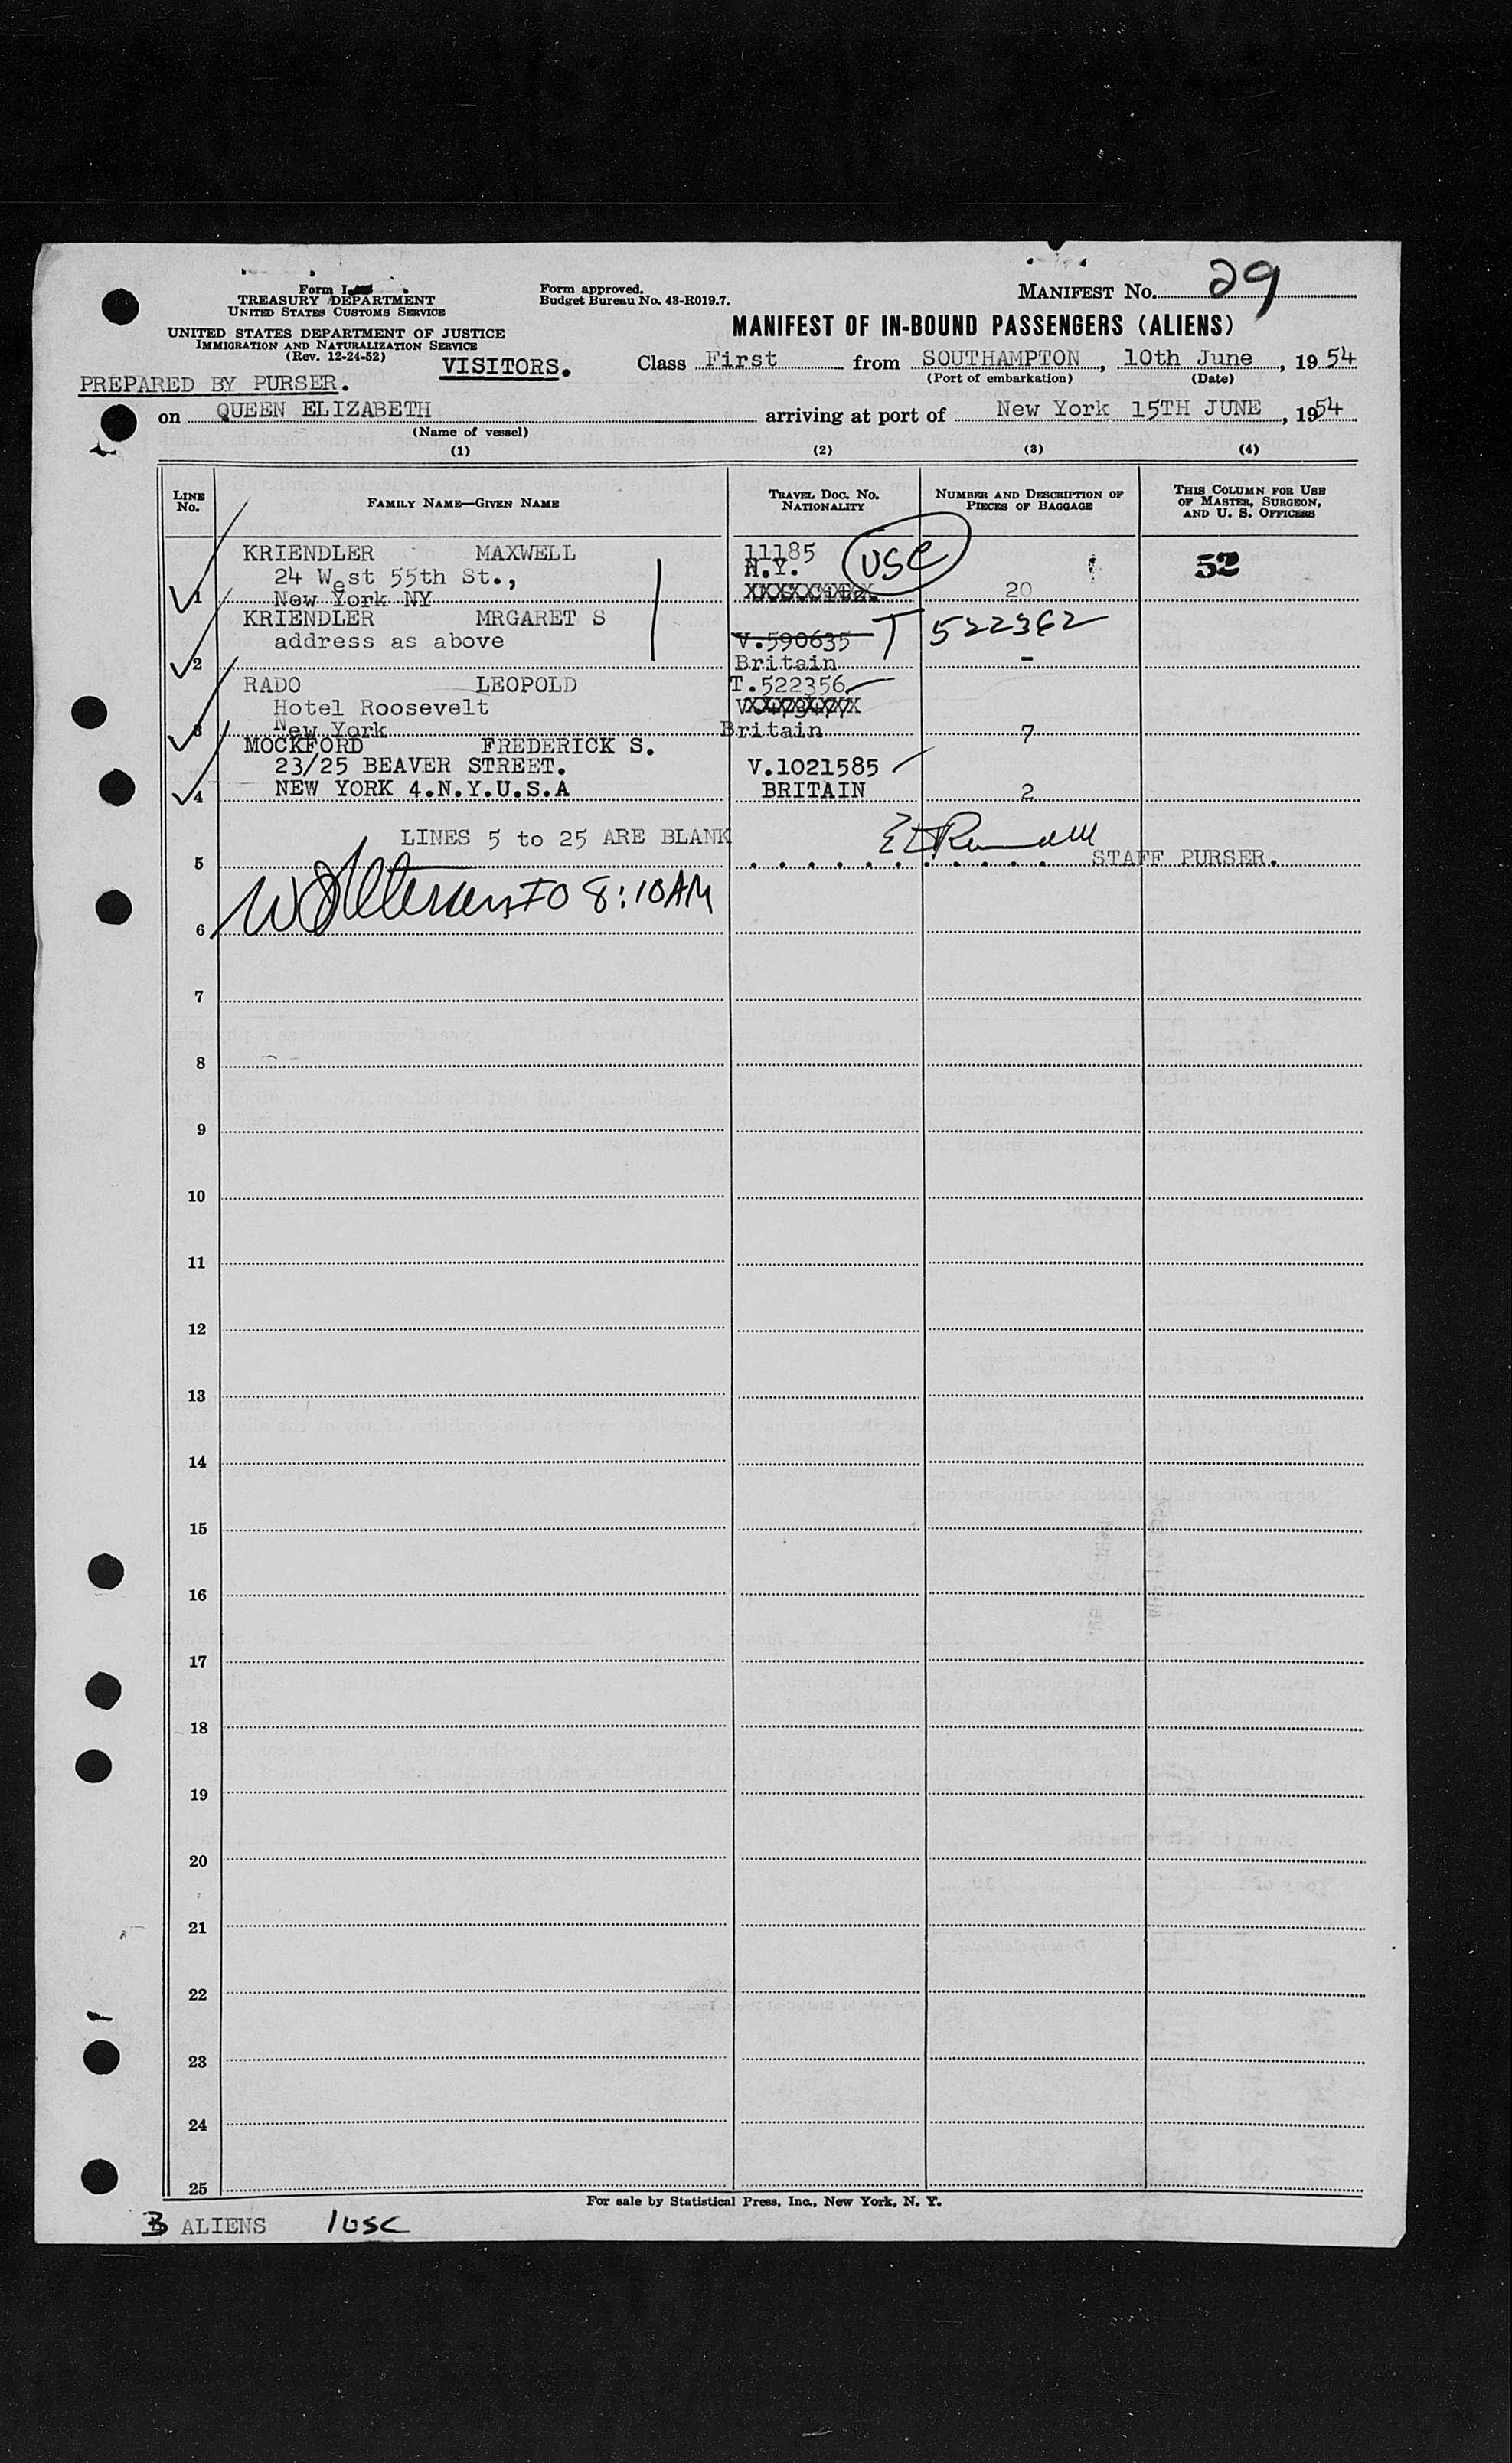 29
Form I
TREASURY DEPARTMENT
UNITED STATES CUSTOMS SERVICE
UNITED STATES DEPARTMENT OF JUSTICE
IMMIGRATION AND NATURALIZATION SERVICE
(Rev. 12-24-52)
Form approved.
Budget Bureau No. 43-R019.7.
MANIFEST NO.
MANIFEST OF IN-BOUND PASSENGERS (ALIENS)
VISITORS. Class First from SOUTHAMPTON, 10th June, 1954
(Port of embarkation) (Date)
PREPARED BY PURSER.
on QUEEN ELIZABETH arriving at port of New York 15TH JUNE, 1954
(Name of vessel)
(1) (2) (3) (4)
LINE No. FAMILY NAME—GIVEN NAME TRAVEL DOC. NO. NATIONALITY NUMBER AND DESCRIPTION OF PIECES OF BAGGAGE THIS COLUMN FOR USE OF MASTER, SURGEON, AND U. S. OFFICERS
KRIENDLER MAXWELL 11185 USC 52
24 West 55th St., N.Y.
1 New York NY 20
KRIENDLER MRGARET S
address as above V.590635 T 522362
2 Britain -
RADO LEOPOLD T.522356
Hotel Roosevelt
3 New York Britain 7
MOCKFORD FREDERICK S.
23/25 BEAVER STREET. V.1021585
4 NEW YORK 4.N.Y.U.S.A BRITAIN 2
LINES 5 to 25 ARE BLANK
5 STAFF PURSER.
6 8:10AM
7
8
9
10
11
12
13
14
15
16
17
18
19
20
21
22
23
24
25
For sale by Statistical Press, Inc., New York, N. Y.
3 ALIENS 1 USC